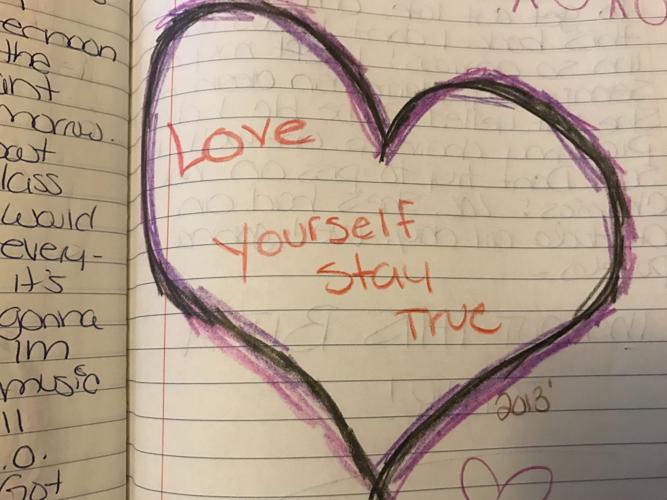 ernoon
the
morrow.
lass
would
every-
it's
gonna
Im
music
11
.O.
Got
Love
yourself
stay
True
2013'